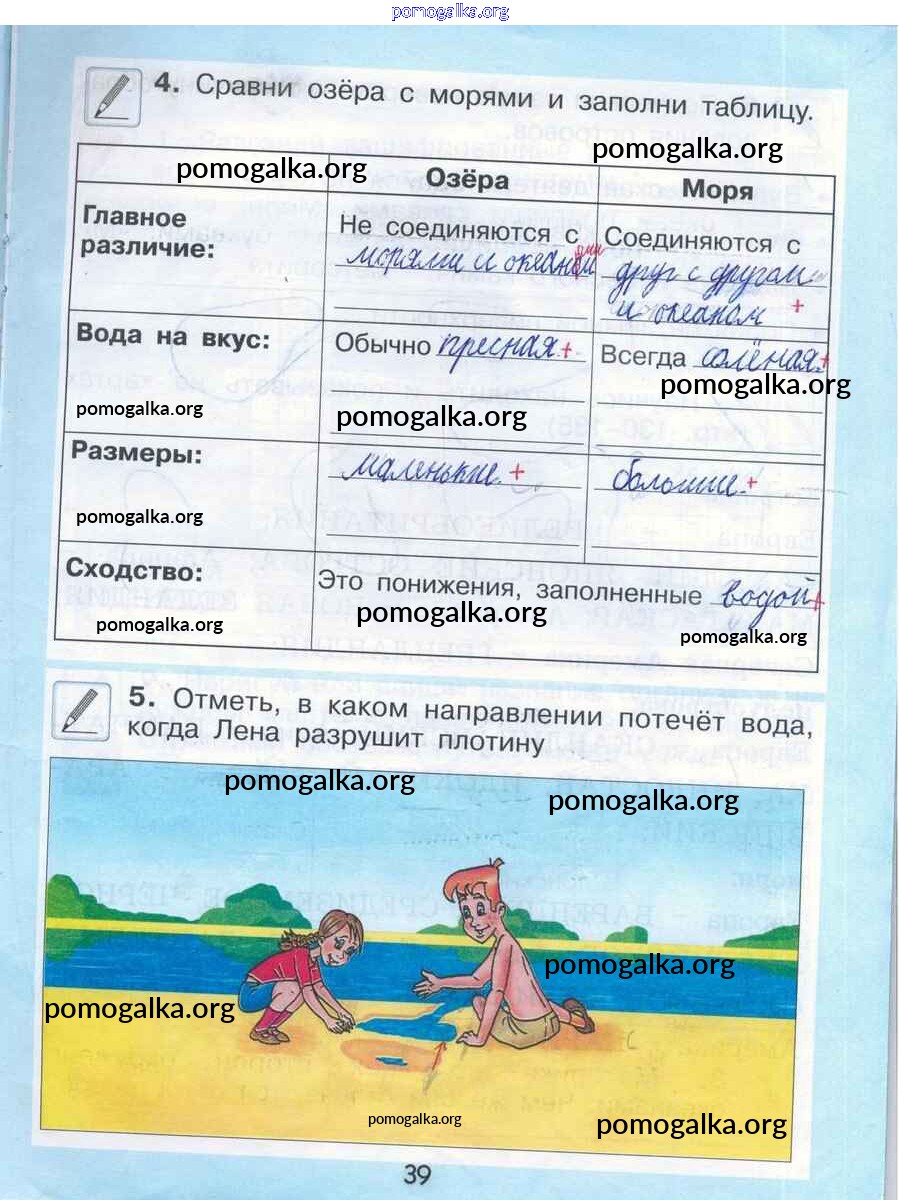 pomogalka.org
4. Сравни озёра с морями и заполни таблицу.
pomogalka.org
pomogalka.org
Озёра
Моря
Главное
различие:
Не соединяются с
морями и океанами
Соединяются с
друг с другом
и океаном +
Вода на вкус:
Обычно пресная +
Всегда солёная. +
pomogalka.org
pomogalka.org
pomogalka.org
Размеры:
маленькие. +
большие. +
pomogalka.org
Сходство:
Это понижения, заполненные водой +
pomogalka.org
pomogalka.org
pomogalka.org
5. Отметь, в каком направлении потечёт вода,
когда Лена разрушит плотину
pomogalka.org
pomogalka.org
pomogalka.org
pomogalka.org
pomogalka.org
pomogalka.org
39